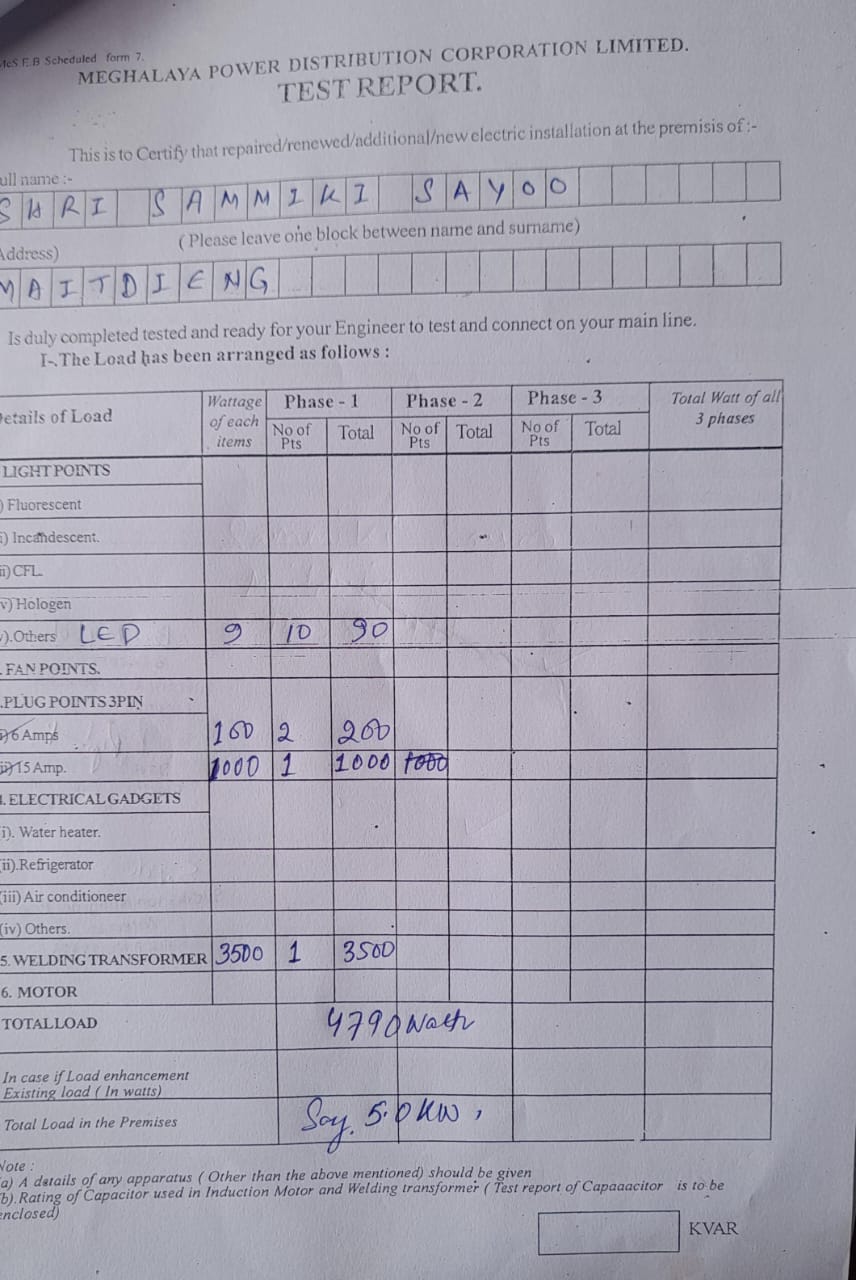 MeS.E.B Scheduled form 7.
MEGHALAYA POWER DISTRIBUTION CORPORATION LIMITED.
TEST REPORT.
This is to Certify that repaired/renewed/additional/new electric installation at the premisis of :-
ull name :-
SHRI SAMMIKI SAYOO
(Please leave one block between name and surname)
Address)
MAITDIENG
Is duly completed tested and ready for your Engineer to test and connect on your main line.
I-.The Load has been arranged as follows :
Details of Load Wattage of each items Phase - 1 Phase - 2 Phase - 3 Total Watt of all 3 phases
No of Pts Total No of Pts Total No of Pts Total
LIGHT POINTS
) Fluorescent
i) Incandescent.
ii) CFL.
v) Hologen
).Others LED 9 10 90
. FAN POINTS.
.PLUG POINTS 3PIN
i) 6 Amps 100 2 200
ii) 15 Amp. 1000 1 1000 1000
. ELECTRICAL GADGETS
i). Water heater.
(ii).Refrigerator
(iii) Air conditioneer
(iv) Others.
5. WELDING TRANSFORMER 3500 1 3500
6. MOTOR
TOTAL LOAD 4790 Watt
In case if Load enhancement
Existing load ( In watts)
Total Load in the Premises Say. 5.0 KW,
Note :
(a) A details of any apparatus ( Other than the above mentioned) should be given
(b). Rating of Capacitor used in Induction Motor and Welding transformer ( Test report of Capaaacitor is to be
enclosed)
KVAR